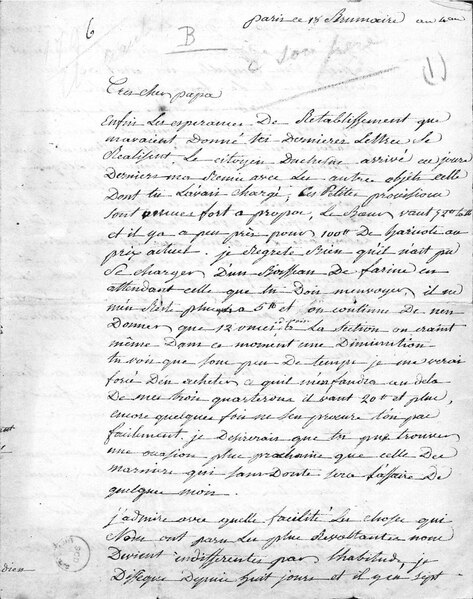 6
B
paris ce 18 Brumaire an 4eme
a son père
(1)
Tres cher papa
Enfin Les esperances De Retablissement que
m'avaient Donné tes Dernieres Lettres Se
Realisent, Le citoyen Duchesne arrivé ces jours
Derniers ma Remis avec Les autres objets celle
Dont tu L'avais Chargé, Ces Petites provisions
Sont venues fort a propos, Le Beurre vaut
et il y a a peu près pour 100tt De haricots au
prix actuel. je Regrete Bien qu'il n'ait pu
Se charger D'un Boisseau De farine en
attendant celle que tu Dois m'envoyer, il ne
m'en Reste plus et on continue De n'en
Donner que 12 onces La section on craint
même Dans ce moment une Diminution
tu vois que Sous peu De temps je me verai
forcé D'en acheter ce qu'il m'en faudra au dela
De mes trois quarterons il vaut 20tt et plus,
encore quelques fois ne S'en procure t'on pas
facilement, je Desirerais que tu pus trouver
une ocasion plus prochaine que celle Des
mariniers qui Sans Doute Sera l'affaire De
quelques mois.
j'admire avec quelle facilité Les choses qui
Nous ont paru Les plus Revoltantes nous
Devient indifferentes par l'habitude, je
Disseque Depuis huit jours et il y en sept